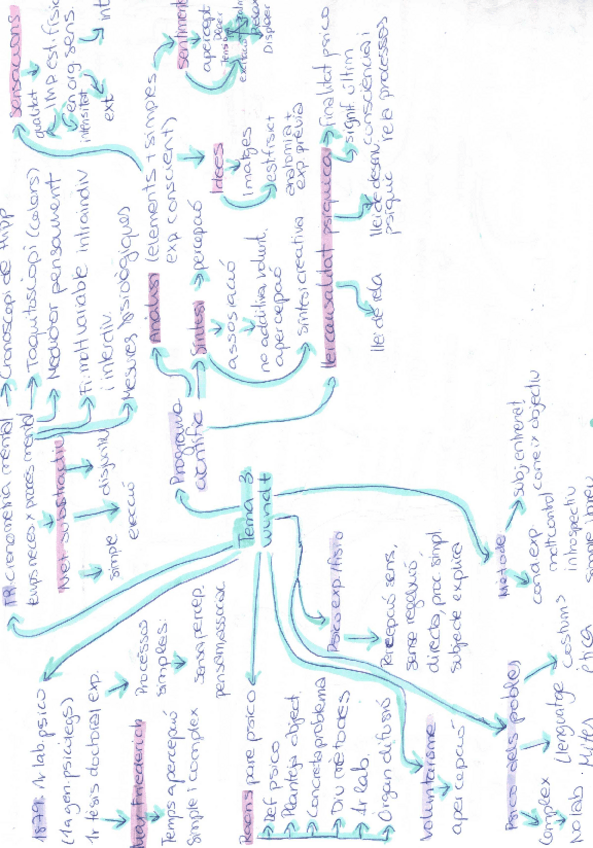 Tema 3:
wundt
TR cronometria mental → Cronoscopi de Hipp
temps neces x procés mental → Taquitoscopi (colors)
→ Mediador pensament
→ Fi: motl variable intraindiv
i interdiv.
→ Mesures fisiològiques
Mèt substractiu
simple
elecció
disjuntiu
1879: 1r lab. psico
(1a gen. psicòlegs)
1r tesis doctoral exp.
Max Friederich
Temps apercepció
simple i complex
Processos
simples:
sensa percep
pensam assoc
Raons pare psico
Def psico
Planteja object.
Concreta problema
Diu mètodes
1r lab.
Organ difusió
Voluntarisme
apercepció
Psico exp/fisio
Percepció sens,
sense regulació
directa, proc simpl
subjecte explora
Psico dels pobles
Complex
No lab.
Llenguatge
Mites
costums
ètica
Mètode
cond exp.
molt control
introspectiu
simple, immed
subj entrenat
coneix objectiu
Programa
científic
Anàlisi (elements + simples
exp conscient)
Sensacions
qualitat
Imp est. físic
en org sens.
intensitat
ext
int
Sentiments
apercept
Plaer
Tensió
excitació
Relax
Displaer
Idees
imatges
est físic
anatomia +
exp. prèvia
Síntesi → percepció
associació
no additiva, volunt.
apercepció
síntesi creativa
llei causalitat psíquica → finalitat psico
signif. últim
consciència i
rela processos
llei de desenv
psíquic
llei de rela